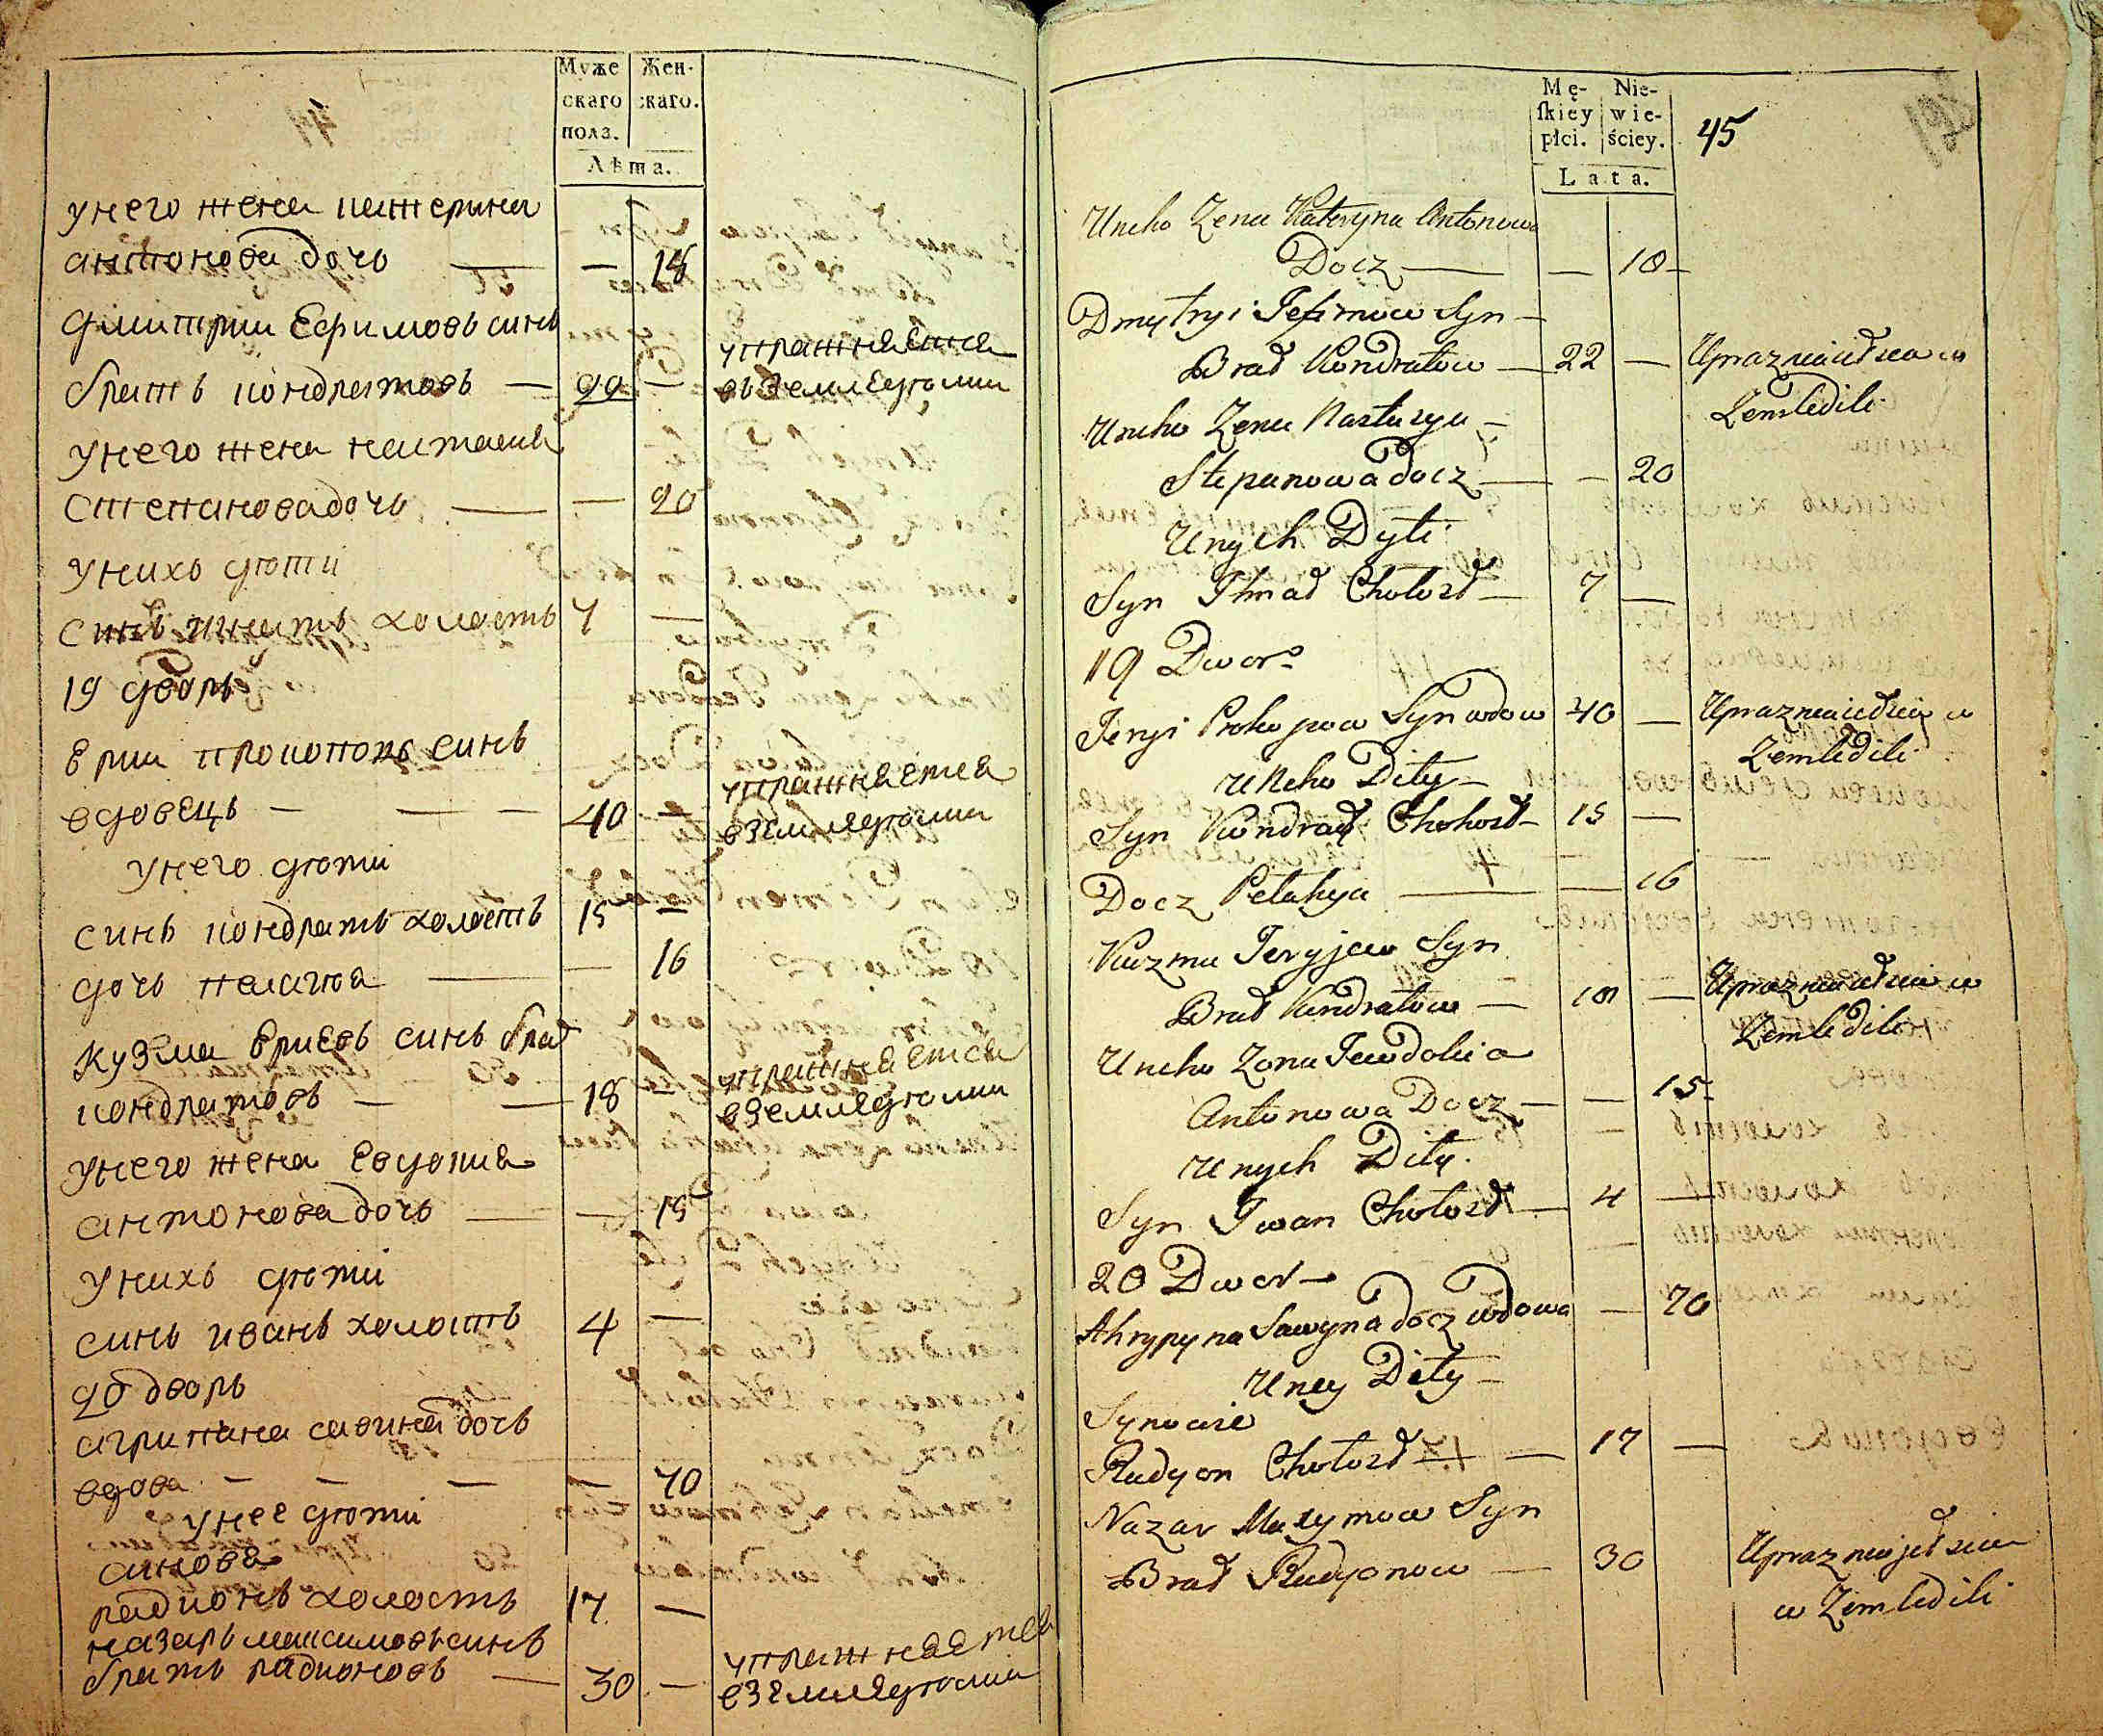 Муже Жен-
скаго скаго.
полз.
Лѣта.
унего жена катерина
антонова дочь — — 18
дмитрии Ефимовъ синъ
братъ кондратовъ — 22 — упражняется
въ земледелии
унего жена настасия
степановадочь — — 20
унихъ дѣти
синъ игнатъ холостъ 7 —
19 дворъ
Ерии прокоповъ синъ
вдовецъ — — — 40 — упражняется
в земледелии
унего дѣти
синъ кондратъ холостъ 15 —
дочь пелагия — — 16
кузма Ериевъ синъ брат
кондратовъ — — 18 — упражняется
в земледелии
унего жена Евдокия
антонова дочь — — 15
унихъ дѣти
синъ иванъ холостъ 4 —
20 дворъ
агрипина савина дочь
вдова — — — — 70
унее дѣти
синовя
радионъ холостъ 17 —
назаръ максимовъ синъ
братъ радионовъ — 30 — упражняется
в земледелии
Mę- Nie-
ſkiey wie-
płci. ściey. 45
Lata.
Uneho Zena Kateryna Antonowa
Docz — — 18 —
Dmytryi Jefimow Syn —
Brad Kondratow — 22 — Uprazniaiedsia w
Zemledili
Uneho Zena Nastazya —
Stepanowa docz — — 20
Unych Dyti
Syn Ihnad Chołosd — 7 —
19 Dwor
Jeryi Prokopow Syn wdow 40 — Uprazniaiedsia w
Zemledili
Uneho Dity —
Syn Kondrad Chołosd — 15 —
Docz Pelahya — — 16
Kuzma Jeryjew Syn
Brad Kondratow — 18 — Uprazniaiedsia w
Zemledili
Uneho Zona Jewdokia
Antonowa Docz — — 15
Unych Dity.
Syn Iwan Chołosd — 4 —
20 Dwor —
Ahrypyna Sawyna docz wdowa — 70
Uney Dity —
Synowie
Radyon Chołosd — — 17 —
Nazar Maxymow Syn
Brad Radyonow — 30 Uprazniajedsia
w Zemledili